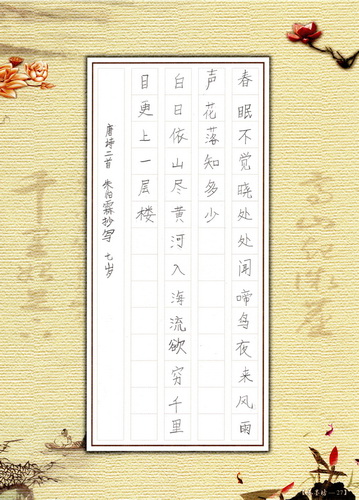 春眠不觉晓处处闻啼鸟夜来风雨
声花落知多少
白日依山尽黄河入海流欲穷千里
目更上一层楼
唐诗二首 朱霖抄写 七岁